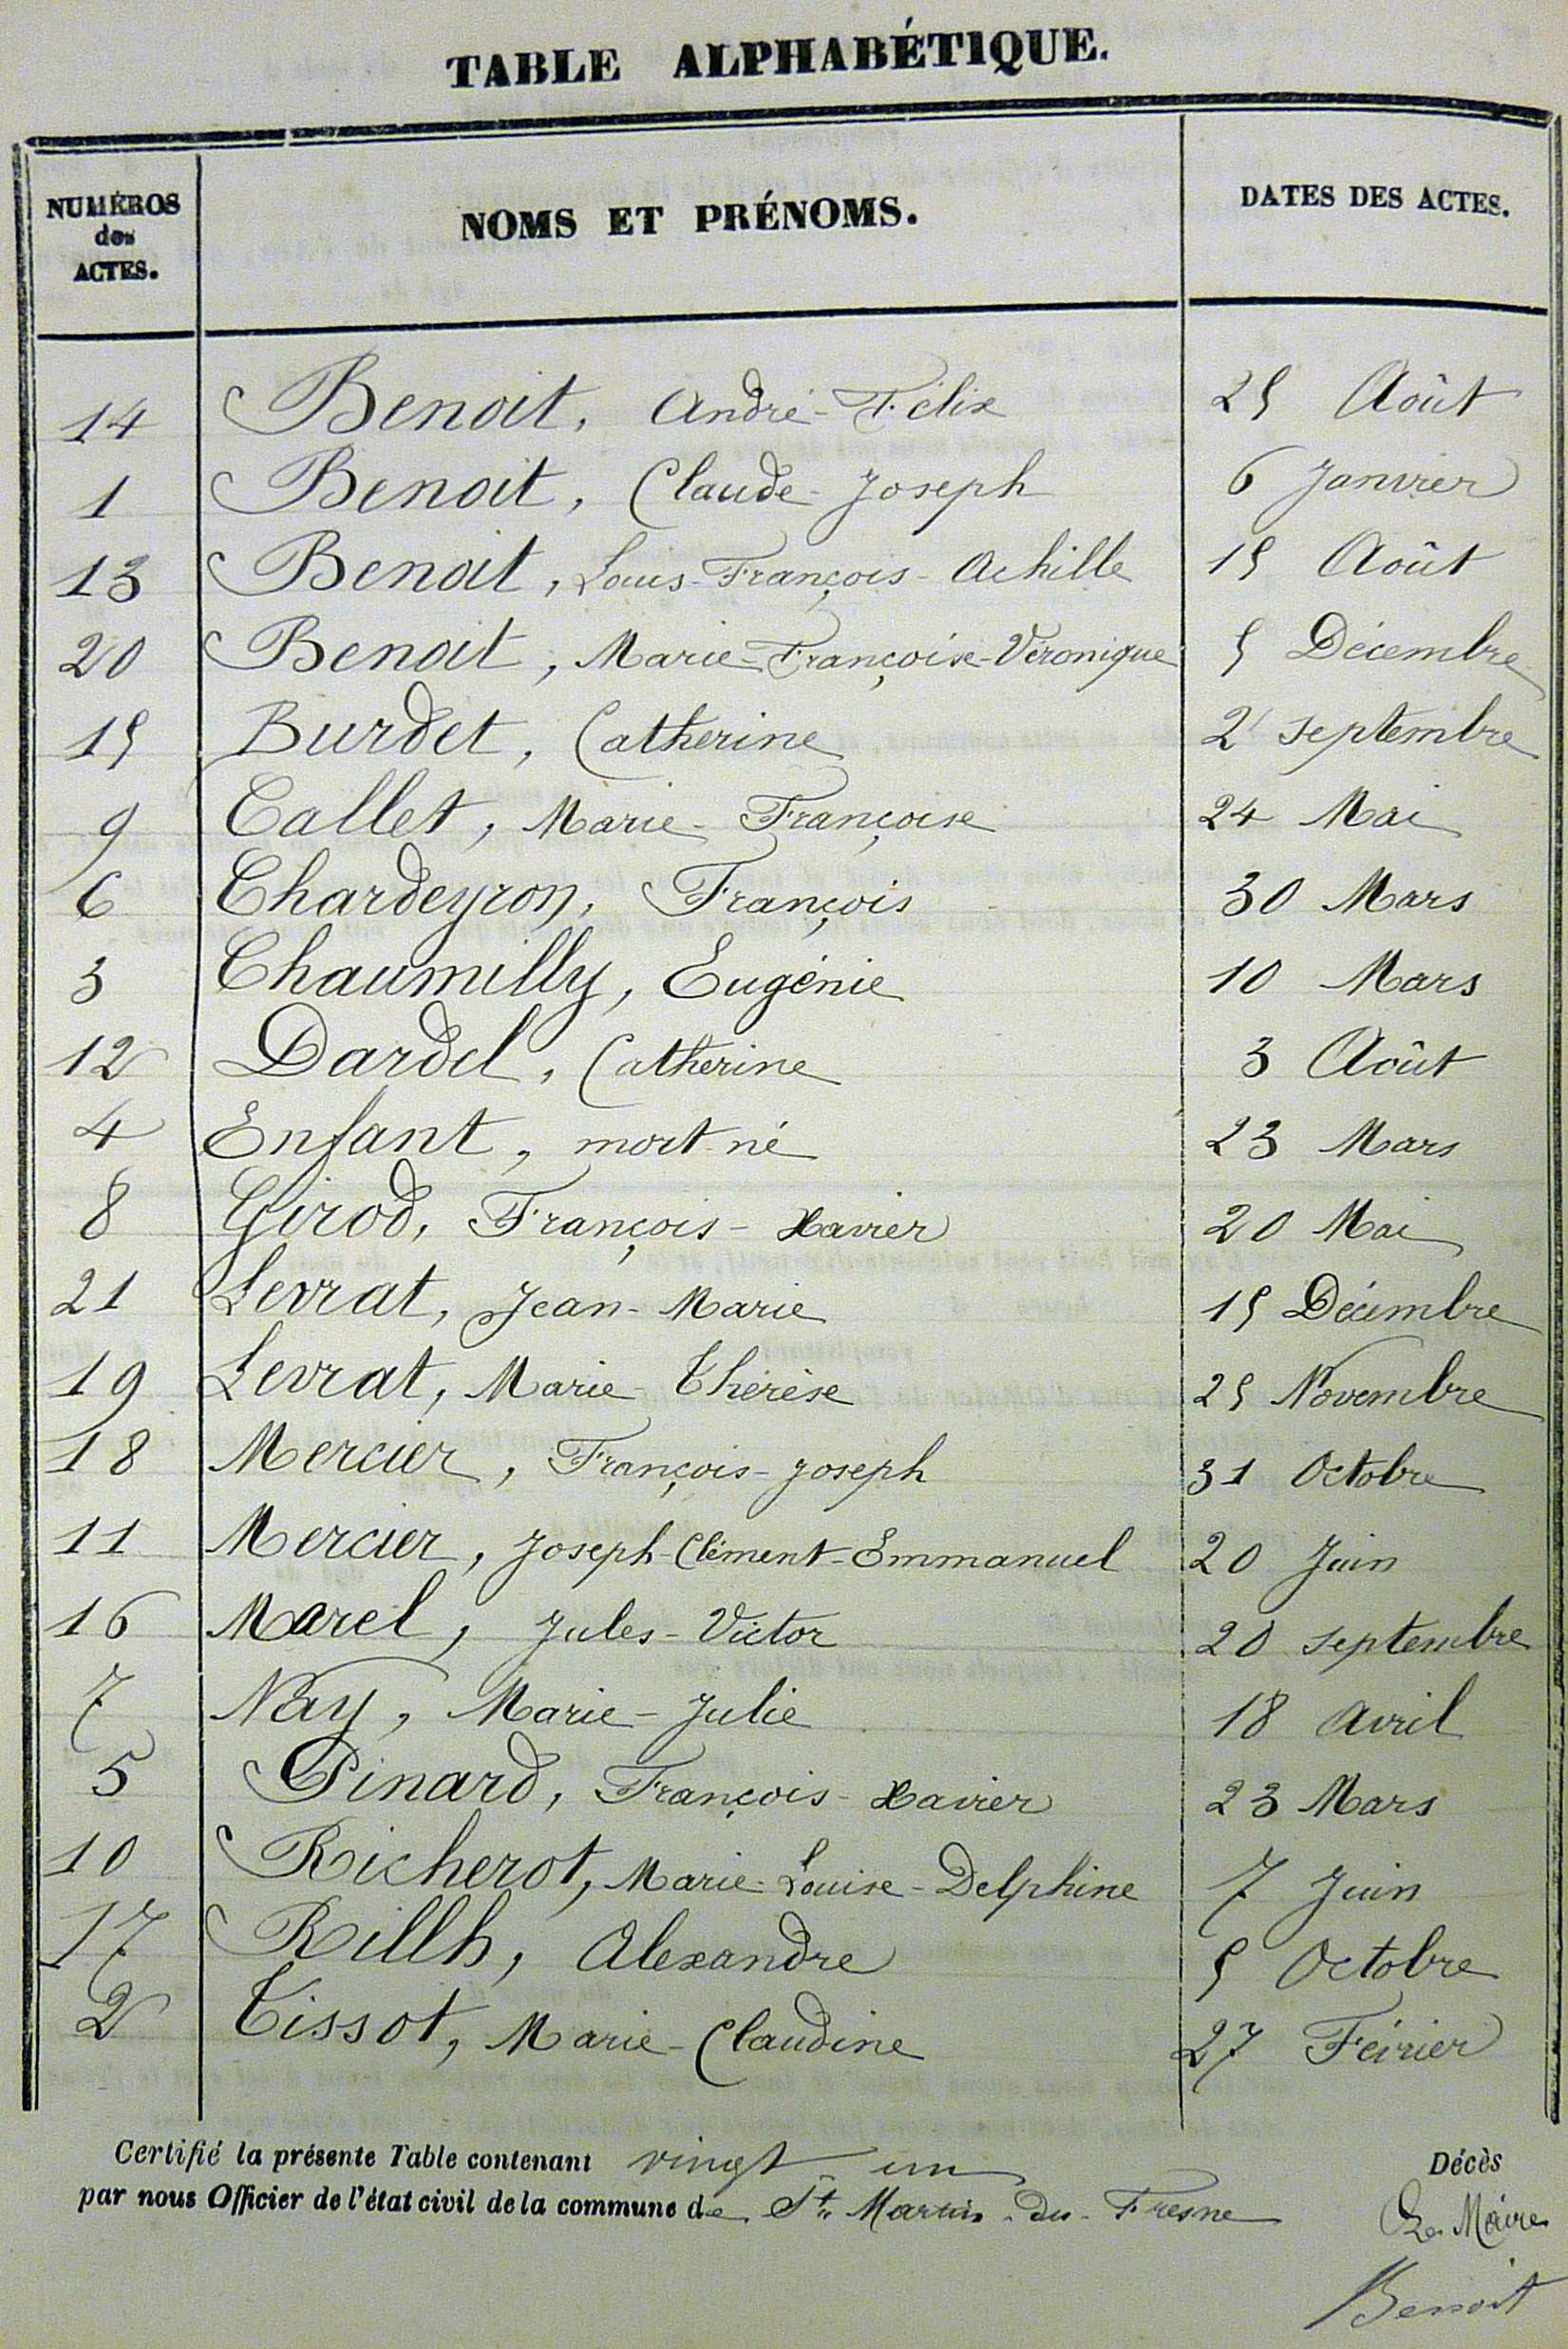 TABLE ALPHABÉTIQUE.
NUMÉROS des ACTES. NOMS ET PRÉNOMS. DATES DES ACTES.
14 Benoit, André-Félix 25 Août
1 Benoit, Claude-Joseph 6 Janvier
13 Benoit, Louis-François-Achille 15 Août
20 Benoit, Marie-Françoise-Véronique 5 Décembre
15 Burdet, Catherine 2 septembre
9 Callet, Marie-Françoise 24 Mai
6 Chardeyron, François 30 Mars
3 Chaumilly, Eugénie 10 Mars
12 Dardel, Catherine 3 Août
4 Enfant, mort-né 23 Mars
8 Girod, François-Xavier 20 Mai
21 Levrat, Jean-Marie 15 Décembre
19 Levrat, Marie-Thérèse 25 Novembre
18 Mercier, François-Joseph 31 Octobre
11 Mercier, Joseph-Clément-Emmanuel 20 Juin
16 Morel, Jules-Victor 20 septembre
7 Nay, Marie-Julie 18 avril
5 Pinard, François-Xavier 23 Mars
10 Richerot, Marie-Louise-Delphine 7 Juin
17 Rillh, Alexandre 5 Octobre
2 Tissot, Marie-Claudine 27 Février
Certifié la présente Table contenant vingt un Décès
par nous Officier de l'état civil de la commune de St. Martin-du-Fresne
Le Maire
Benoit